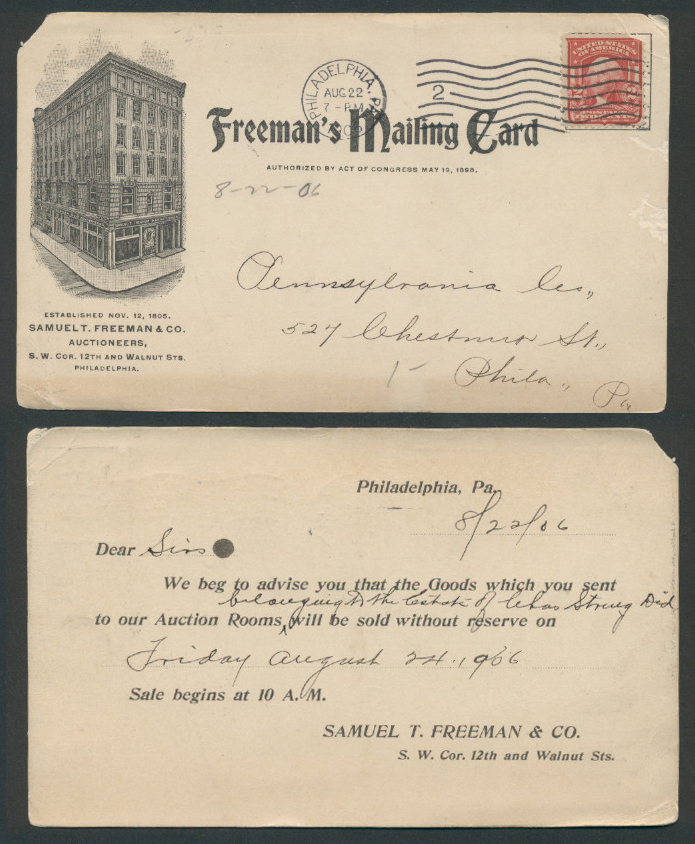 PHILADELPHIA, PA.
AUG 22
7 - P M
2
UNITED STATES
OF AMERICA
Freeman's Mailing Card
AUTHORIZED BY ACT OF CONGRESS MAY 19, 1898.
8-22-06
Pennsylvania Co.,
527 Chestnut St.,
Phila., Pa
ESTABLISHED NOV. 12, 1805.
SAMUEL T. FREEMAN & CO.
AUCTIONEERS,
S. W. COR. 12TH AND WALNUT STS.
PHILADELPHIA.
Philadelphia, Pa.,
8/22/06
Dear Sirs
We beg to advise you that the Goods which you sent
belonging to the Estate of Chas Strong Dcd
to our Auction Rooms, will be sold without reserve on
Friday August 24. 1906
Sale begins at 10 A. M.
SAMUEL T. FREEMAN & CO.
S. W. Cor. 12th and Walnut Sts.